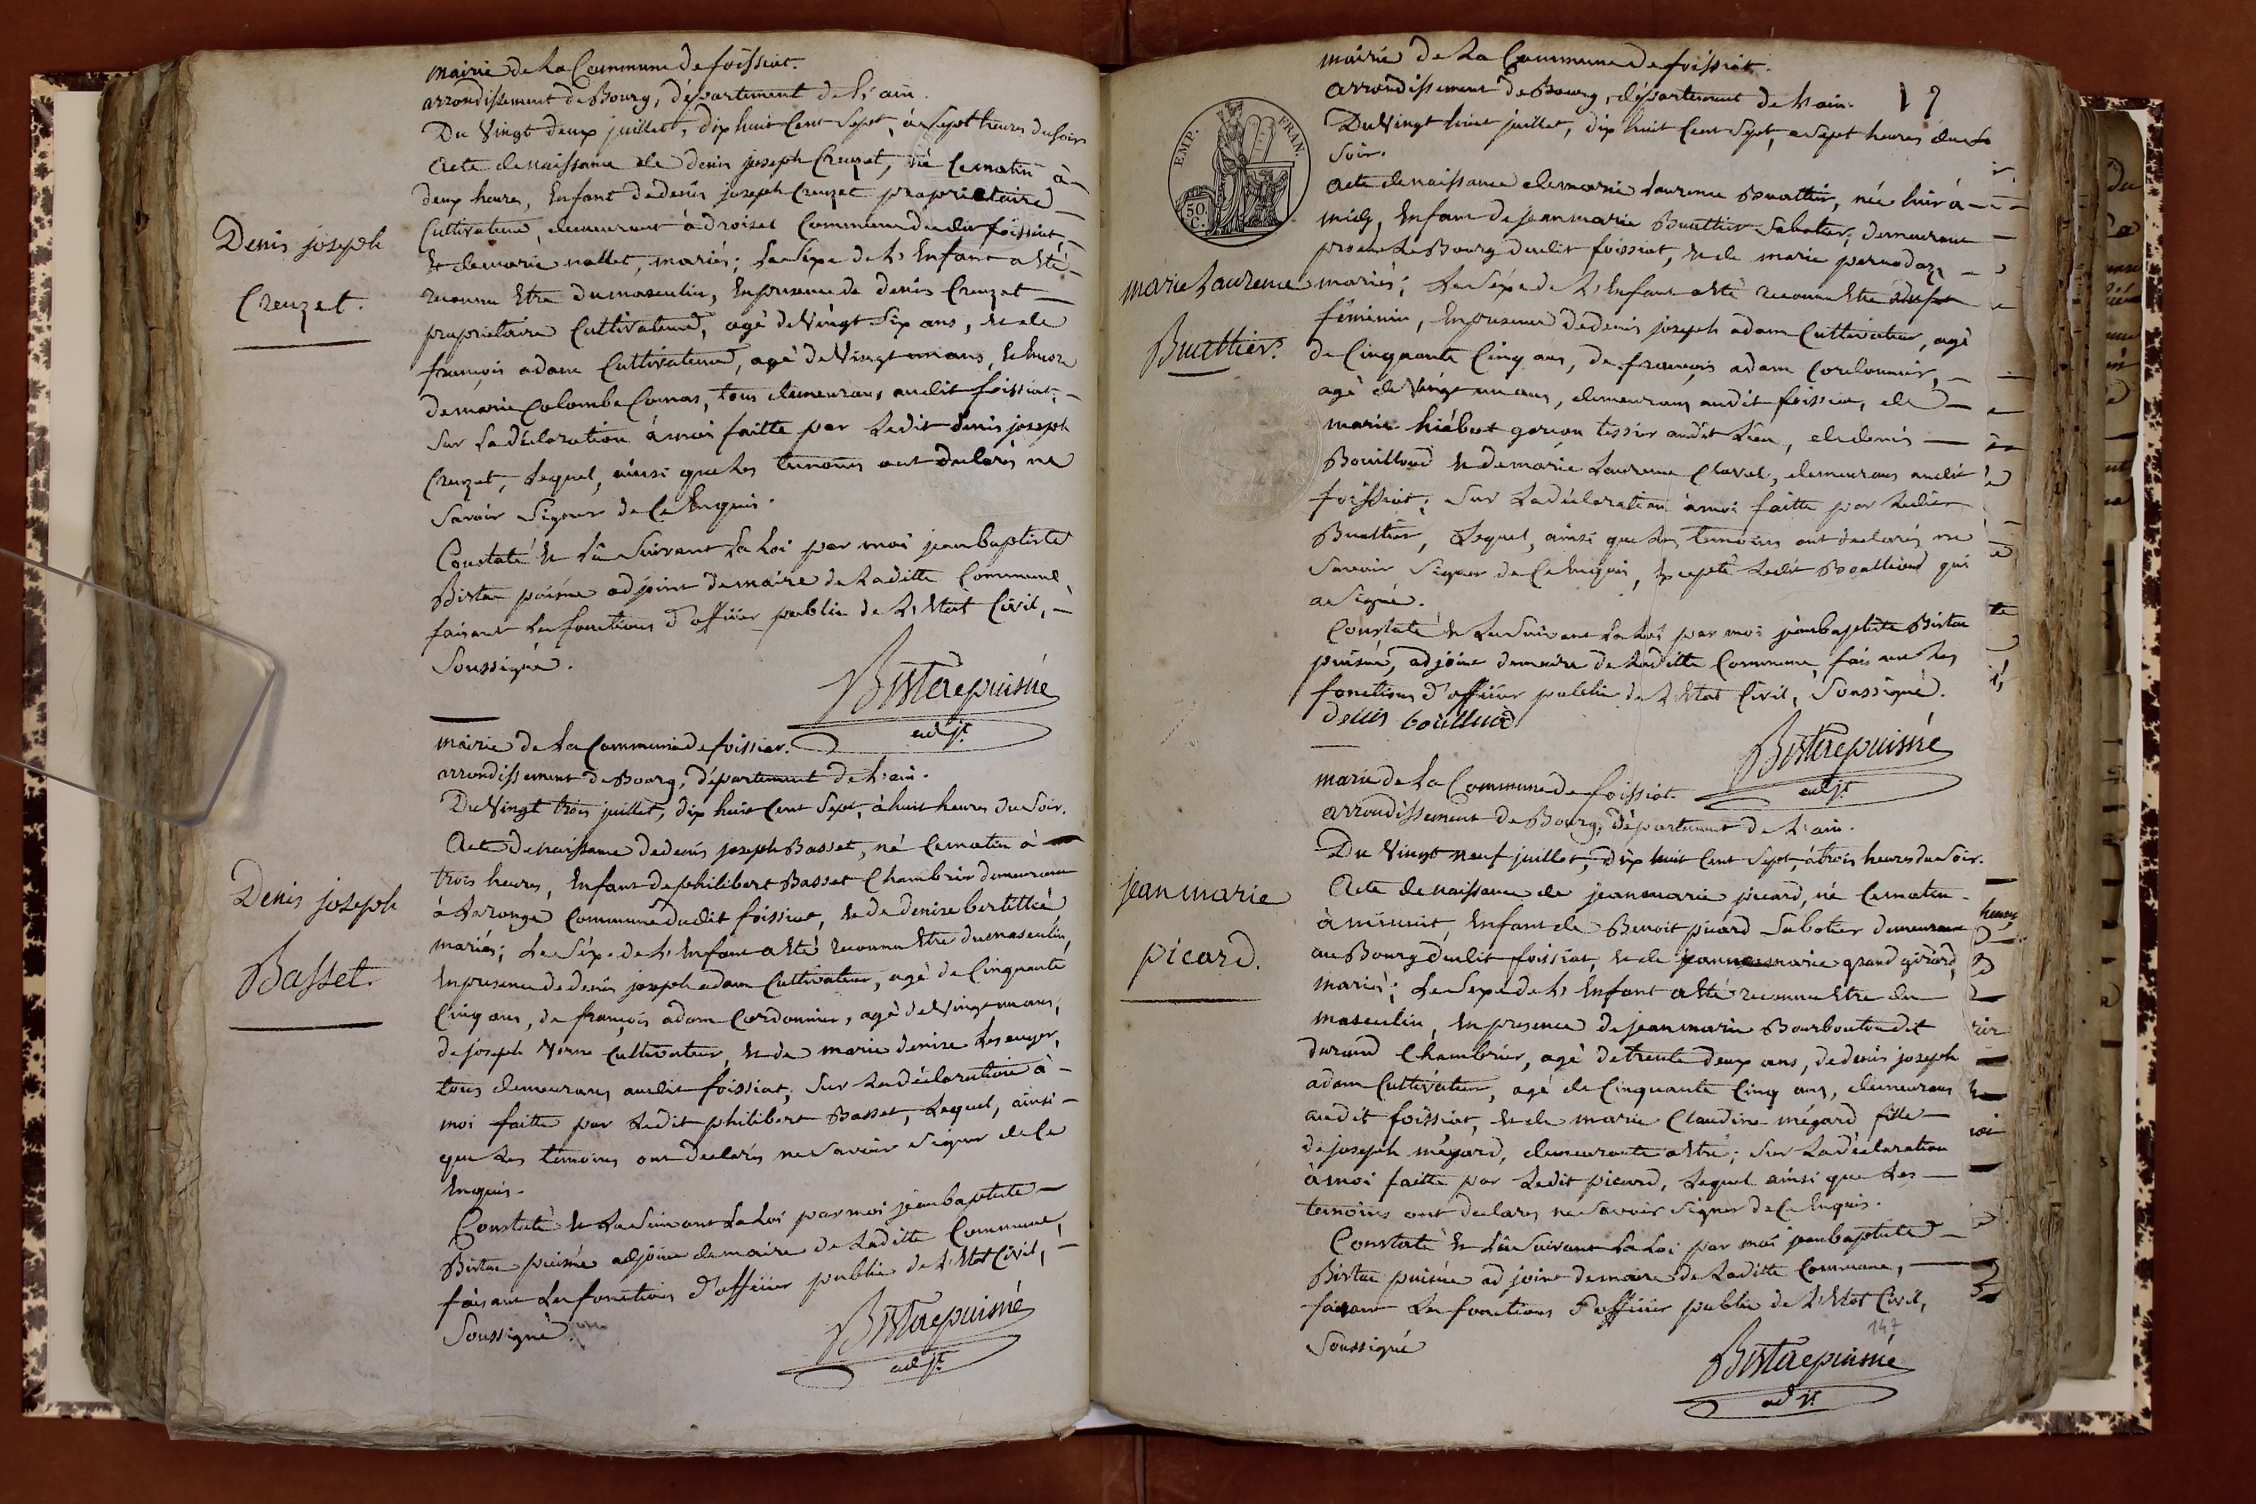 mairie de La Commune de foissiat.
arrondissement de Bourg, département de L'ain.
Du Vingt deux juillet, dix huit Cent Sept, à Sept heures du soir
Acte de naissance de denis joseph Creuzet, né Ce matin à
deux heures, Enfant de denis joseph Creuzet proprietaire
Cultivateur, demeurant à droiset Commune dudit foissiat,
Denis joseph
Creuzet.
Et de marie nallet, mariés; Le Sexe de L'Enfant a Eté
reconnu Etre du masculin, En presence de denis Creuzet
proprietaire Cultivateur, agé de Vingt Six ans, et de
françois adam Cultivateur, agé de Vingt un ans, et Encore
de marie Colombe Comas, tous demeurans audit foissiat;
Sur La déclaration à moi faitte par Ledit denis joseph
Creuzet, Lequel, ainsi que Les temoins ont declarés ne
Savoir Signer de Ce Enquis.
Constaté Et Lû Suivant La Loi par moi jean baptiste
Bistac puisné adjoint de maire de Laditte Commune,
faisant Les fonctions d'officier public de L'Etat Civil,
Soussigné.
Bistac puisné
adjt
mairie de La Commune de foissiat.
arrondissement de Bourg, département de L'ain.
Du Vingt trois juillet, dix huit Cent Sept, à huit heures du Soir.
Acte de naissance de denis joseph Basset, né Ce matin à
trois heures, Enfant de philibert Basset Chambrier demeurant
Denis joseph
Basset.
à Commune dudit foissiat, Et de denise
mariés; Le Séxe de L'Enfant a Eté reconnu Etre du masculin,
En presence de denis joseph adam Cultivateur, agé de Cinquante
Cinq ans, de françois adam Cordonnier, agé de Vingt un ans,
de joseph Cultivateur, Et de marie denise
tous demeurans audit foissiat; Sur La déclaration à
moi faitte par Ledit philibert Basset, Lequel, ainsi
que Les temoins ont declarés ne Savoir Signer de Ce
Enquis.
Constaté Et Lu Suivant La Loi par moi jean baptiste
Bistac puisné adjoint de maire de Laditte Commune,
faisant Les fonctions d'officier public de L'Etat Civil,
Soussigné.
Bistac puisné
adjt
17
mairie de La Commune de foissiat.
arrondissement de Bourg, département de L'ain.
Du Vingt huit juillet, dix huit Cent Sept, à Sept heures du
Soir.
EMP. FRAN.
50 C.
Acte de naissance de marie Laurence Buattier, née hier à
midy, Enfant de jean marie Buattier Sabotier, demeurant
proche Le Bourg dudit foissiat, et de marie
marie Laurence
Buattier.
mariés; Le Séxe de L'Enfant a Eté reconnu Etre du
féminin, En presence de denis joseph adam Cultivateur, agé
de Cinquante Cinq ans, de françois adam Cordonnier,
agé de Vingt un ans, demeurans audit foissiat, de
marie garçon tissier audit Lieu, de denis
Bouilloud Et de marie Laurence Claval, demeurans audit
foissiat; Sur La déclaration à moi faitte par Ledit
Buattier, Lequel, ainsi que Les temoins ont declarés ne
Savoir Signer de Ce Enquis, Excepté Ledit Bouilloud qui
a Signé.
Constaté Et Lu Suivant La Loi par moi jean baptiste Bistac
puisné, adjoint de maire de Laditte Commune, faisant Les
fonctions d'officier public de L'Etat Civil, Soussigné.
denis bouilloud
Bistac puisné
adjt
marie de La Commune de foissiat.
arrondissement de Bourg, département de L'ain.
Du Vingt neuf juillet, dix huit Cent Sept, à trois heures du Soir.
jean marie
picard.
Acte de naissance de jean marie picard, né Ce matin
à minuit, Enfant de Benoit picard Sabotier demeurant
au Bourg dudit foissiat, et de jeanne marie grand girard,
mariés; Le Sexe de L'Enfant a Eté reconnu Etre du
masculin, En presence de jean marie Bourbouton dit
durand Chambrier, agé de trente deux ans, de denis joseph
adam Cultivateur, agé de Cinquante Cinq ans, demeurans
audit foissiat, et de marie Claudine mégard fille
de joseph mégard, demeurante ; Sur La déclaration
à moi faitte par Ledit picard, Lequel ainsi que Les
temoins ont declarés ne Savoir Signer de Ce Enquis.
Constaté Et Lû Suivant La Loi par moi jean baptiste
Bistac puisné adjoint de maire de Laditte Commune,
faisant Les fonctions d'officier public de L'Etat Civil,
147
Soussigné
Bistac puisné
adjt